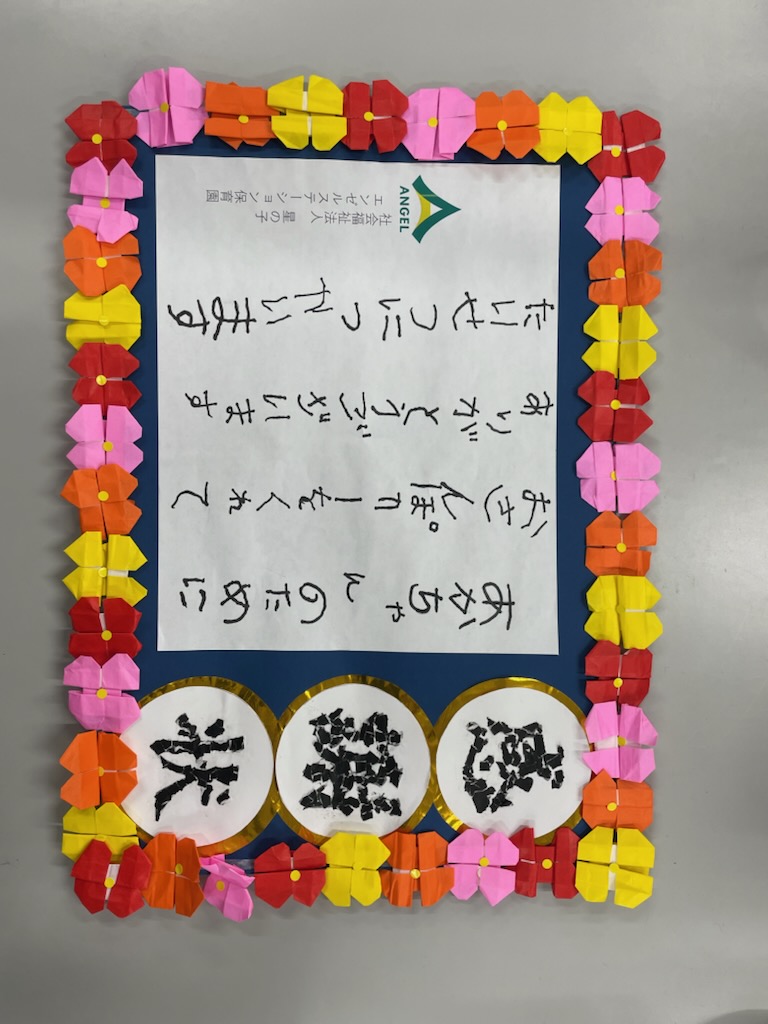 感謝状
あかちゃんのために
おさんぽカーをくれて
ありがとうございます
たいせつにつかいます
ANGEL
社会福祉法人 星の子
エンゼルステーション保育園